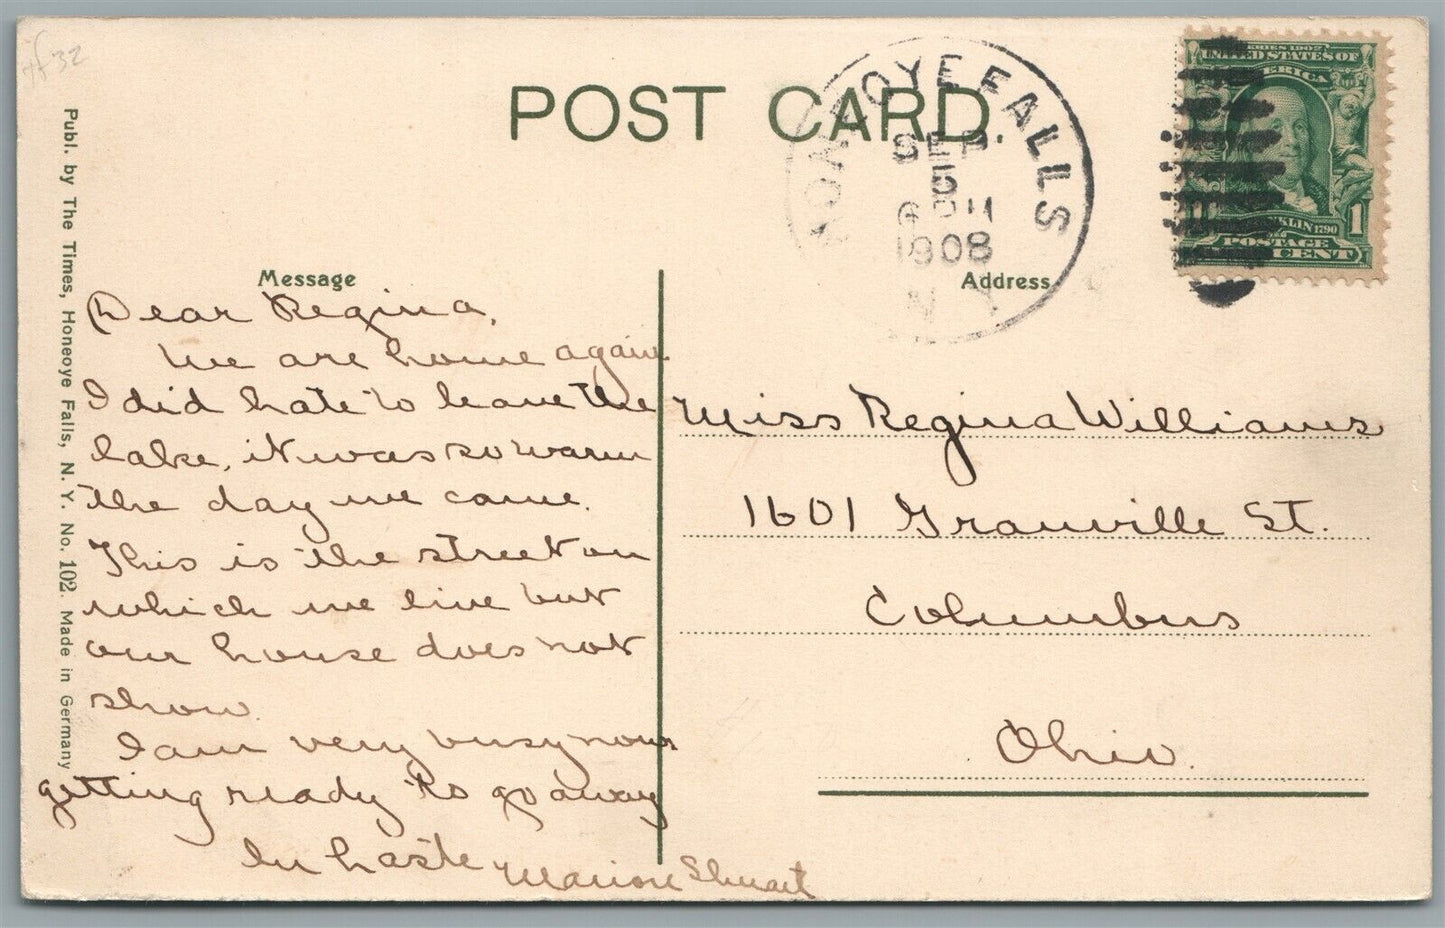 POST CARD.
HONEOYE FALLS
SEP
1908
N Y
SERIES 1902
UNITED STATES OF
AMERICA
FRANKLIN 1790
POSTAGE
1 CENT
Publ. by The Times, Honeoye Falls, N. Y. No. 102. Made in Germany
Message
Dear Regina,
We are home again
I did hate to leave the
lake, it was so warm
the day we came.
This is the street on
which we live but
our house does not
show.
I am very busy now
getting ready to go away
In haste Marion
Address
Miss Regina Williams
1601 Granville St.
Columbus
Ohio.